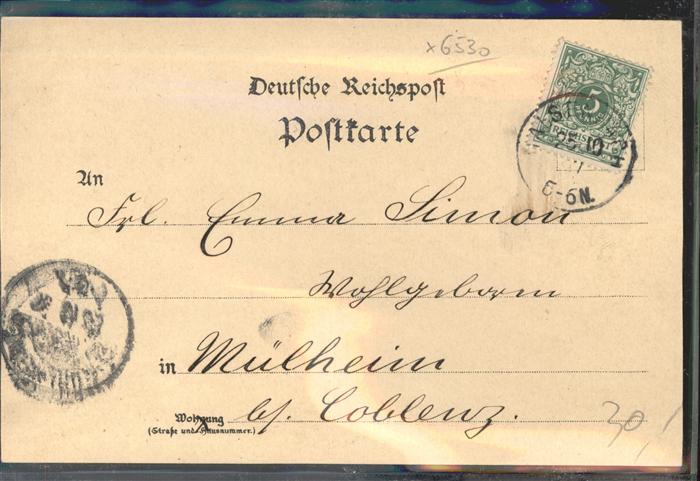 x6530
Deutsche Reichspost
Postkarte
5
An
5-6N.
Frl. Emma Simon
Wohlgeboren
in Mülheim
Wohnung
b/. Coblenz.
(Straße und Hausnummer.)
20,/